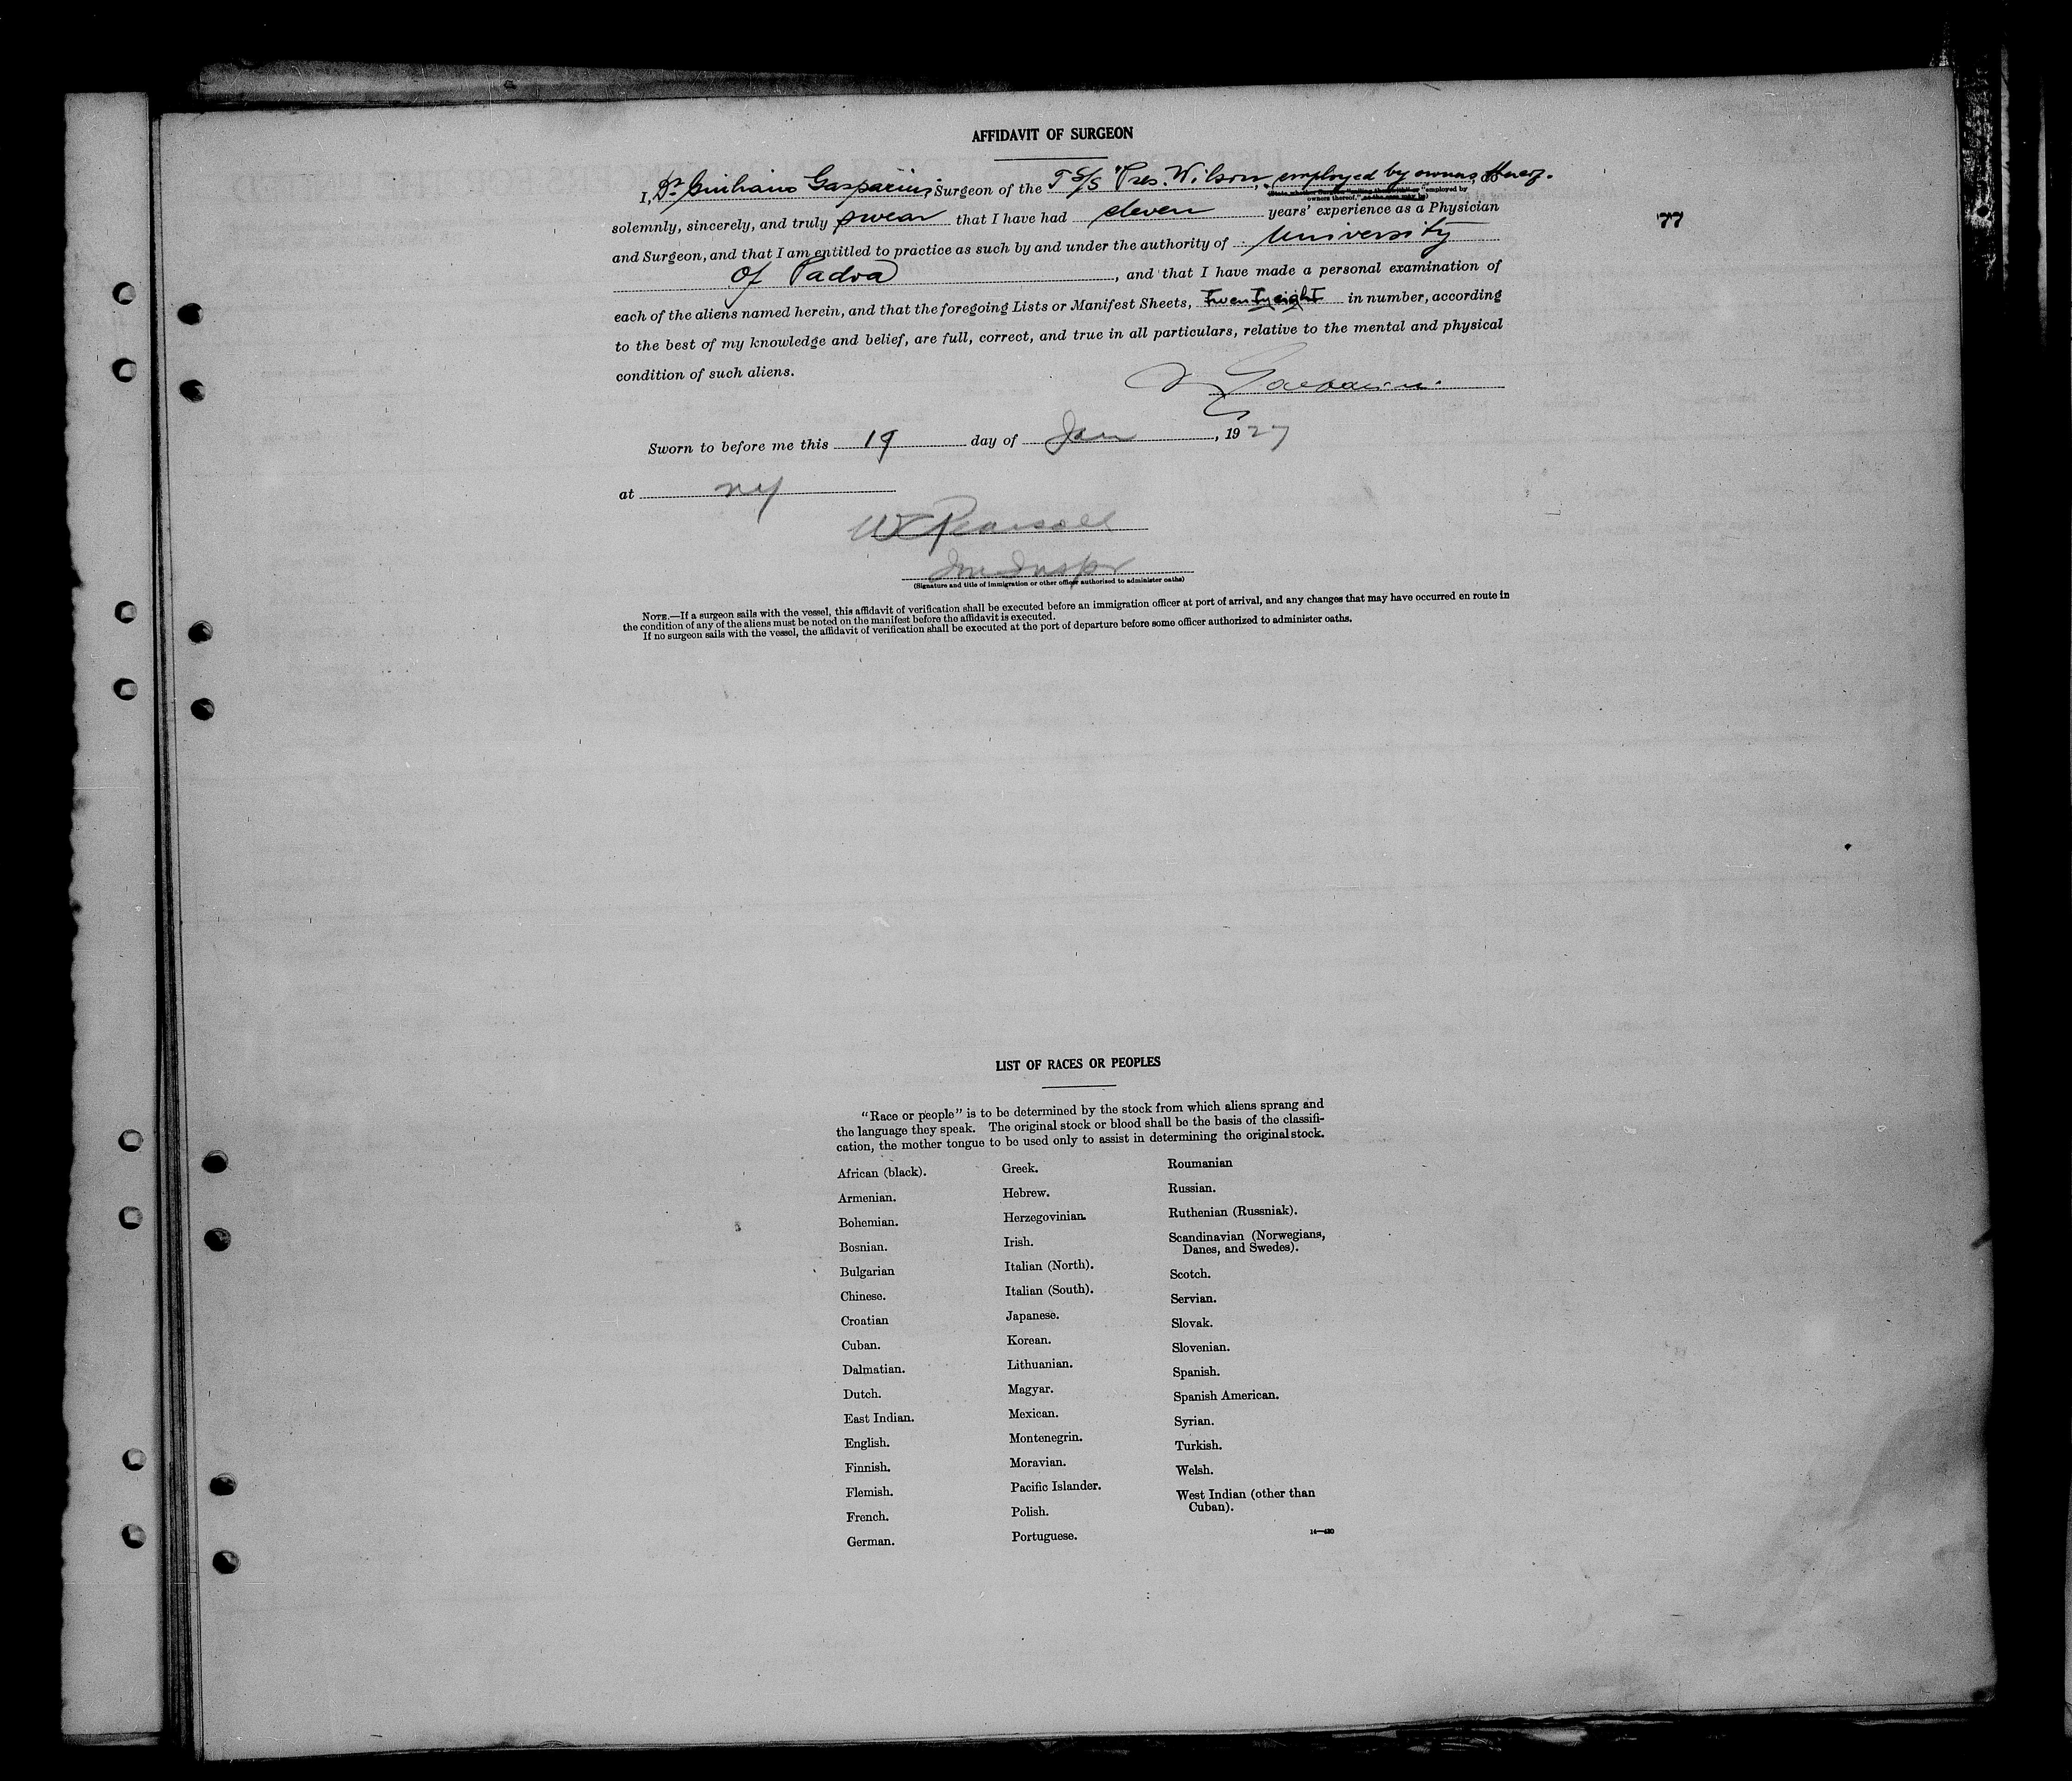 AFFIDAVIT OF SURGEON
I, Dr. Giuliano Gasparini, Surgeon of the T S/S "Pres. Wilson", employed by owners thereof. do
owners thereof," "employed by
77
solemnly, sincerely, and truly swear that I have had eleven years' experience as a Physician
and Surgeon, and that I am entitled to practice as such by and under the authority of University
Of Padva, and that I have made a personal examination of
each of the aliens named herein, and that the foregoing Lists or Manifest Sheets, Twentyeight in number, according
to the best of my knowledge and belief, are full, correct, and true in all particulars, relative to the mental and physical
condition of such aliens.
Gasparini
Sworn to before me this 19 day of Jan, 1927
at ny
W Pearsall
Imm Inspr
(Signature and title of immigration or other officer authorized to administer oaths)
NOTE.—If a surgeon sails with the vessel, this affidavit of verification shall be executed before an immigration officer at port of arrival, and any changes that may have occurred en route in
the condition of any of the aliens must be noted on the manifest before the affidavit is executed.
If no surgeon sails with the vessel, the affidavit of verification shall be executed at the port of departure before some officer authorized to administer oaths.
LIST OF RACES OR PEOPLES
"Race or people" is to be determined by the stock from which aliens sprang and
the language they speak. The original stock or blood shall be the basis of the classifi-
cation, the mother tongue to be used only to assist in determining the original stock.
African (black).
Armenian.
Bohemian.
Bosnian.
Bulgarian
Chinese.
Croatian
Cuban.
Dalmatian.
Dutch.
East Indian.
English.
Finnish.
Flemish.
French.
German.
Greek.
Hebrew.
Herzegovinian.
Irish.
Italian (North).
Italian (South).
Japanese.
Korean.
Lithuanian.
Magyar.
Mexican.
Montenegrin.
Moravian.
Pacific Islander.
Polish.
Portuguese.
Roumanian
Russian.
Ruthenian (Russniak).
Scandinavian (Norwegians,
Danes, and Swedes).
Scotch.
Servian.
Slovak.
Slovenian.
Spanish.
Spanish American.
Syrian.
Turkish.
Welsh.
West Indian (other than
Cuban).